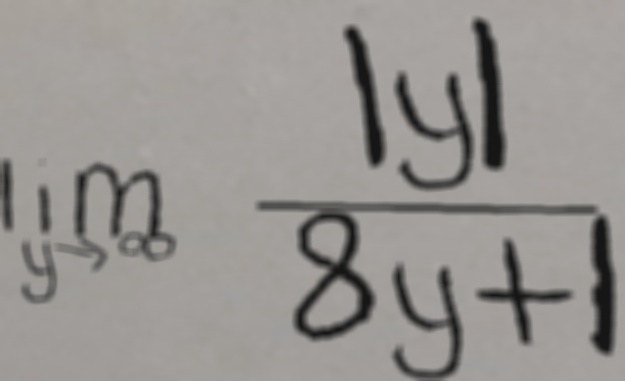 lim y→∞ |y| / 8y+1